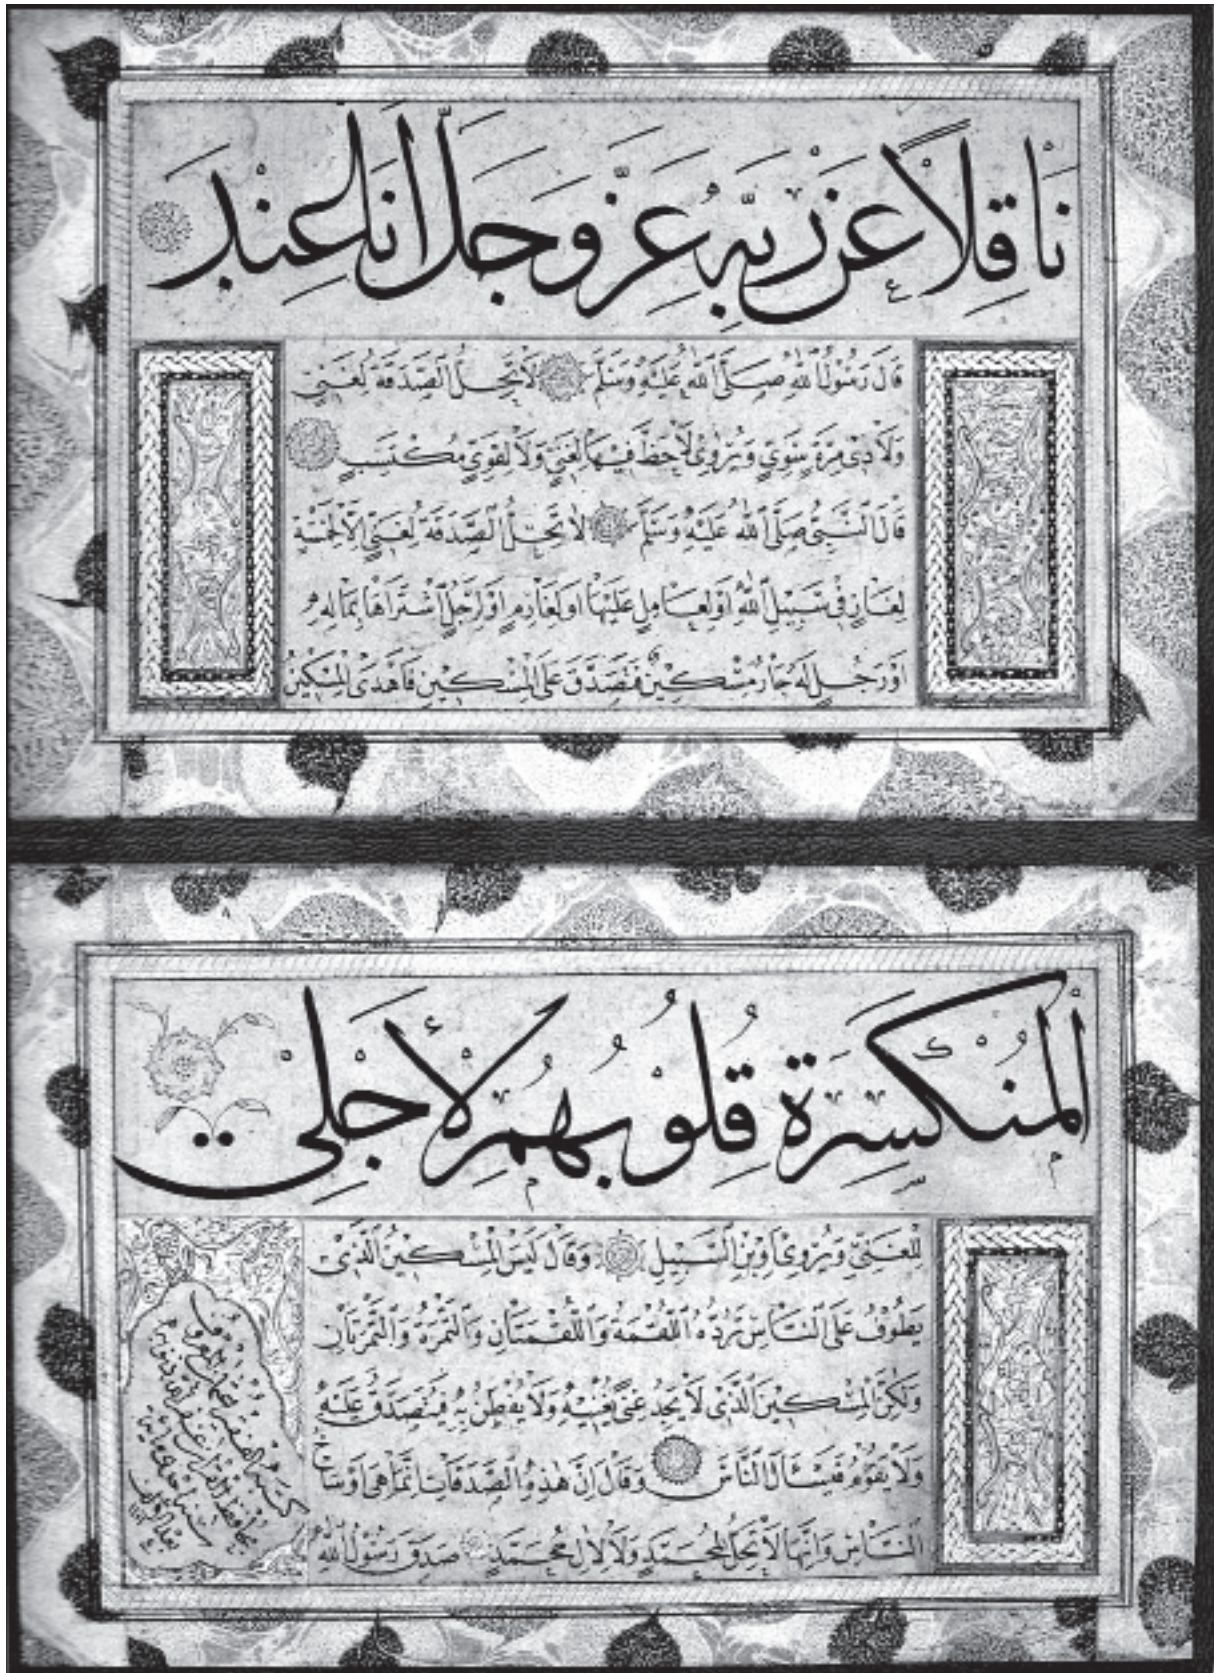 نَاقِلًا عَنْ رَبِّهِ عَزَّ وَجَلَّ أَنَا عِنْدَ
قَالَ رَسُولُ اللهِ صَلَّى اللهُ عَلَيْهِ وَسَلَّمَ لَا تَحِلُّ الصَّدَقَةُ لِغَنِيٍّ
وَلَا ذِي مِرَّةٍ سَوِيٍّ وَيُرْوَى لَا حَظَّ فِيهَا لِغَنِيٍّ وَلَا لِقَوِيٍّ مُكْتَسِبٍ
قَالَ النَّبِيُّ صَلَّى اللهُ عَلَيْهِ وَسَلَّمَ لَا تَحِلُّ الصَّدَقَةُ لِغَنِيٍّ إِلَّا لِخَمْسَةٍ
لِغَازٍ فِي سَبِيلِ اللهِ أَوْ لِعَامِلٍ عَلَيْهَا أَوْ لِغَارِمٍ أَوْ لِرَجُلٍ اشْتَرَاهَا بِمَالِهِ
أَوْ رَجُلٍ لَهُ جَارٌ مِسْكِينٌ فَتَصَدَّقَ عَلَى الْمِسْكِينِ فَأَهْدَى الْمِسْكِينُ
الْمُنْكَسِرَةِ قُلُوبُهُمْ لِأَجْلِي
لِلْغَنِيِّ وَيُرْوَى أَوِ ابْنِ السَّبِيلِ وَقَالَ لَيْسَ الْمِسْكِينُ الَّذِي
يَطُوفُ عَلَى النَّاسِ تَرُدُّهُ اللُّقْمَةُ وَاللُّقْمَتَانِ وَالتَّمْرَةُ وَالتَّمْرَتَانِ
وَلَكِنَّ الْمِسْكِينَ الَّذِي لَا يَجِدُ غِنًى يُغْنِيهِ وَلَا يُفْطَنُ بِهِ فَيُتَصَدَّقَ عَلَيْهِ
وَلَا يَقُومُ فَيَسْأَلَ النَّاسَ وَقَالَ إِنَّ هٰذِهِ الصَّدَقَاتِ إِنَّمَا هِيَ أَوْسَاخُ
النَّاسِ وَإِنَّهَا لَا تَحِلُّ لِمُحَمَّدٍ وَلَا لِآلِ مُحَمَّدٍ صَدَقَ رَسُولُ اللهِ
كتبه الفقير عثمان المعروف
بحافظ القرآن غفر الله ذنوبه